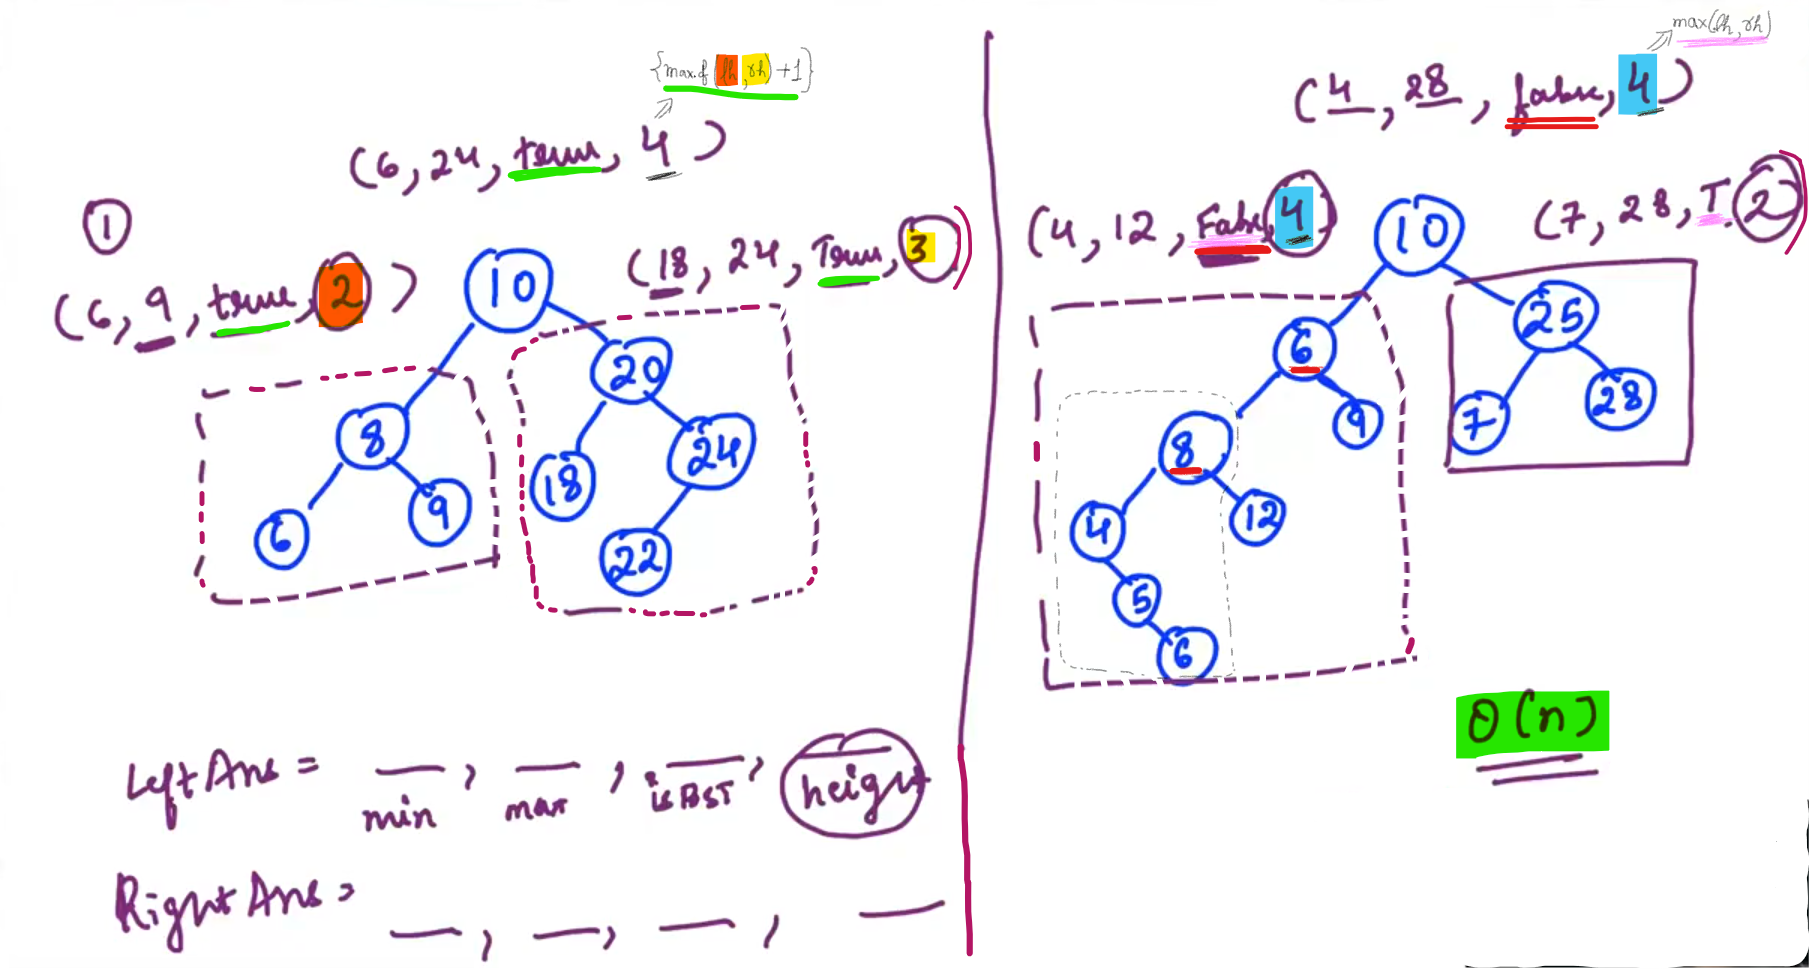 {max.of (lh, rh) +1}
(6, 24, true, 4)
①
(6, 9, true, 2)
(18, 24, True, 3)
10
8
20
6
9
18
24
22
Left Ans = __, __, __, __
min max isBST height
Right Ans = __, __, __, __
max(lh, rh)
(4, 28, false, 4)
(4, 12, False, 4)
(7, 28, T, 2)
10
6
25
8
9
7
28
4
12
5
6
O(n)